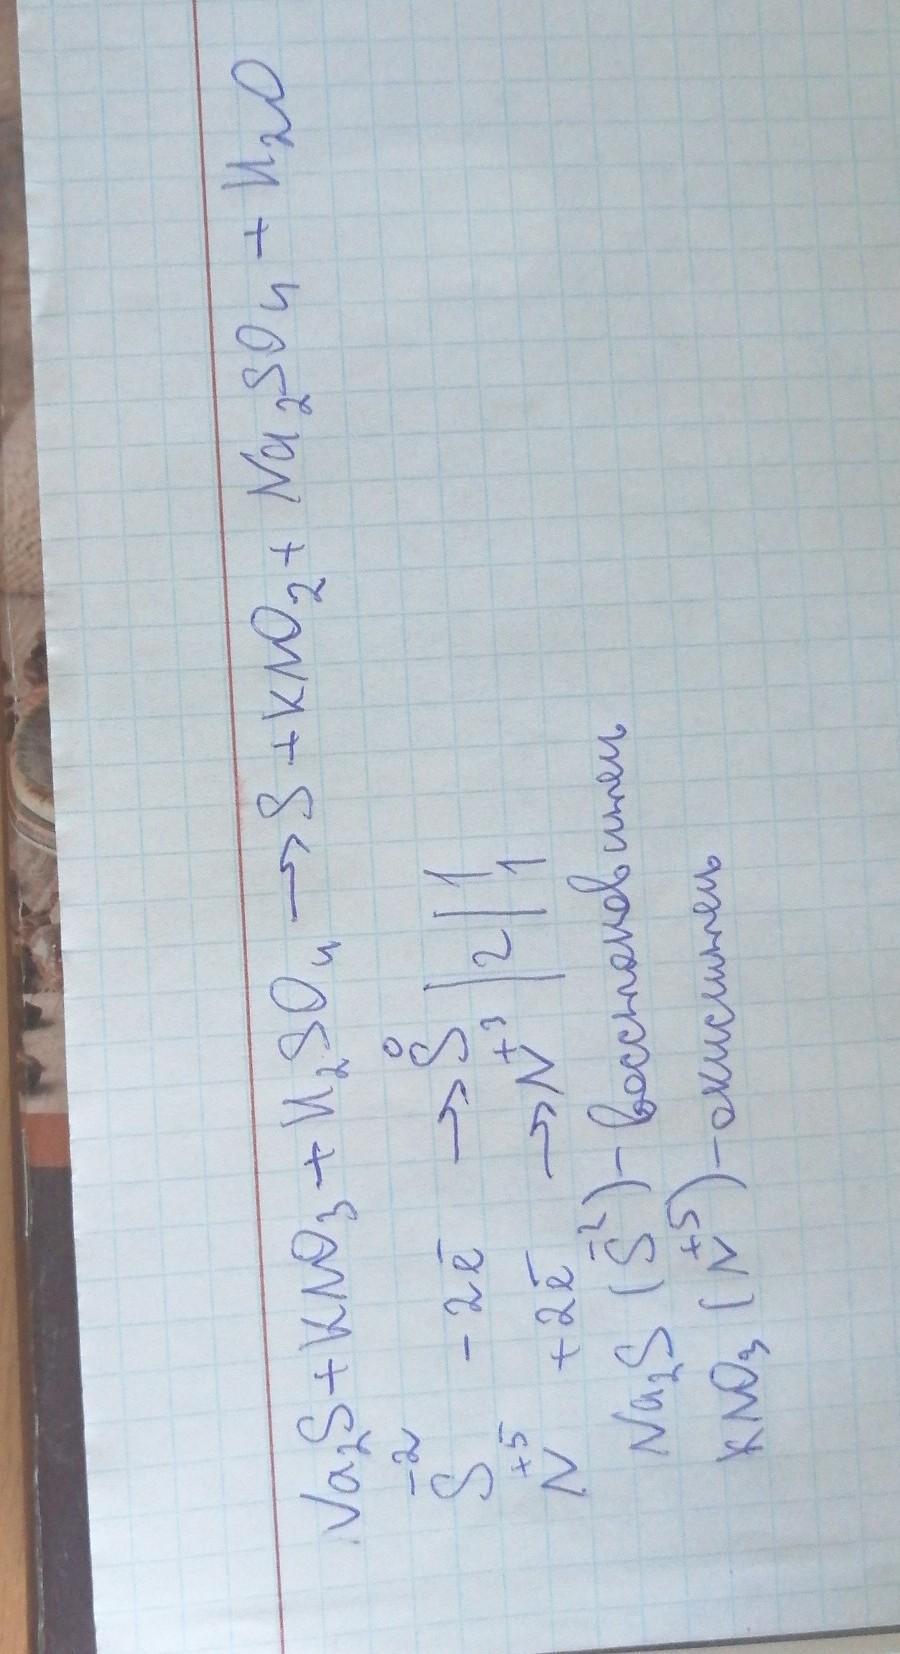 Na₂S + KNO₃ + H₂SO₄ → S + KNO₂ + Na₂SO₄ + H₂O
S⁻² - 2ē → S⁰ | 2 | 1
N⁺⁵ + 2ē → N⁺³ | 1
Na₂S (S⁻²) - восстановитель
KNO₃ (N⁺⁵) - окислитель